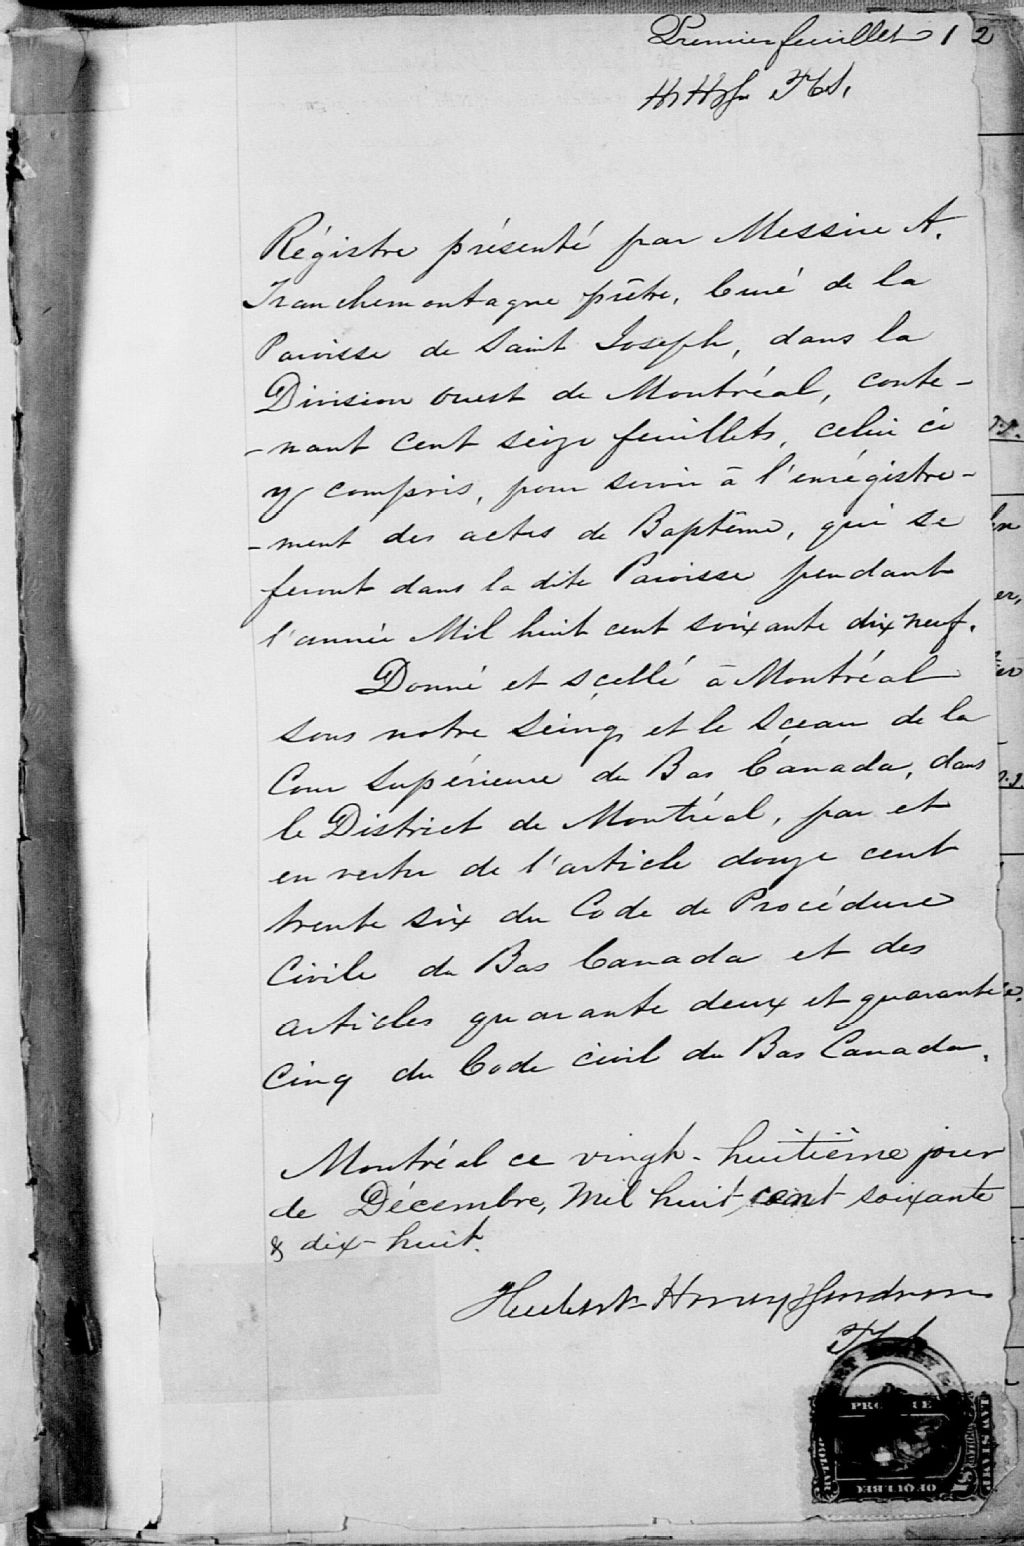 Premier feuillet 1 2
Régistre présenté par Messire A.
Tranchemontagne prêtre, Curé de la
Paroisse de Saint Joseph, dans la
Division ouest de Montréal, conte-
-nant cent seize feuillets, celui ci
y compris, pour servir à l'enrégistre-
-ment des actes de Baptême, qui se
feront dans la dite Paroisse pendant
l'année Mil huit cent soixante dix neuf.
Donné et scellé à Montréal
sous notre Seing et le Sceau de la
Cour Supérieure du Bas Canada, dans
le District de Montréal, par et
en vertu de l'article douze cent
trente six du Code de Procédure
Civile du Bas Canada et des
articles quarante deux et quarante
Cinq du Code civil du Bas Canada.
Montréal ce vingt-huitième jour
de Décembre, Mil huit cent soixante
& dix-huit.
PROVINCE
OF QUEBEC
LAW STAMP
DOLLAR
$1